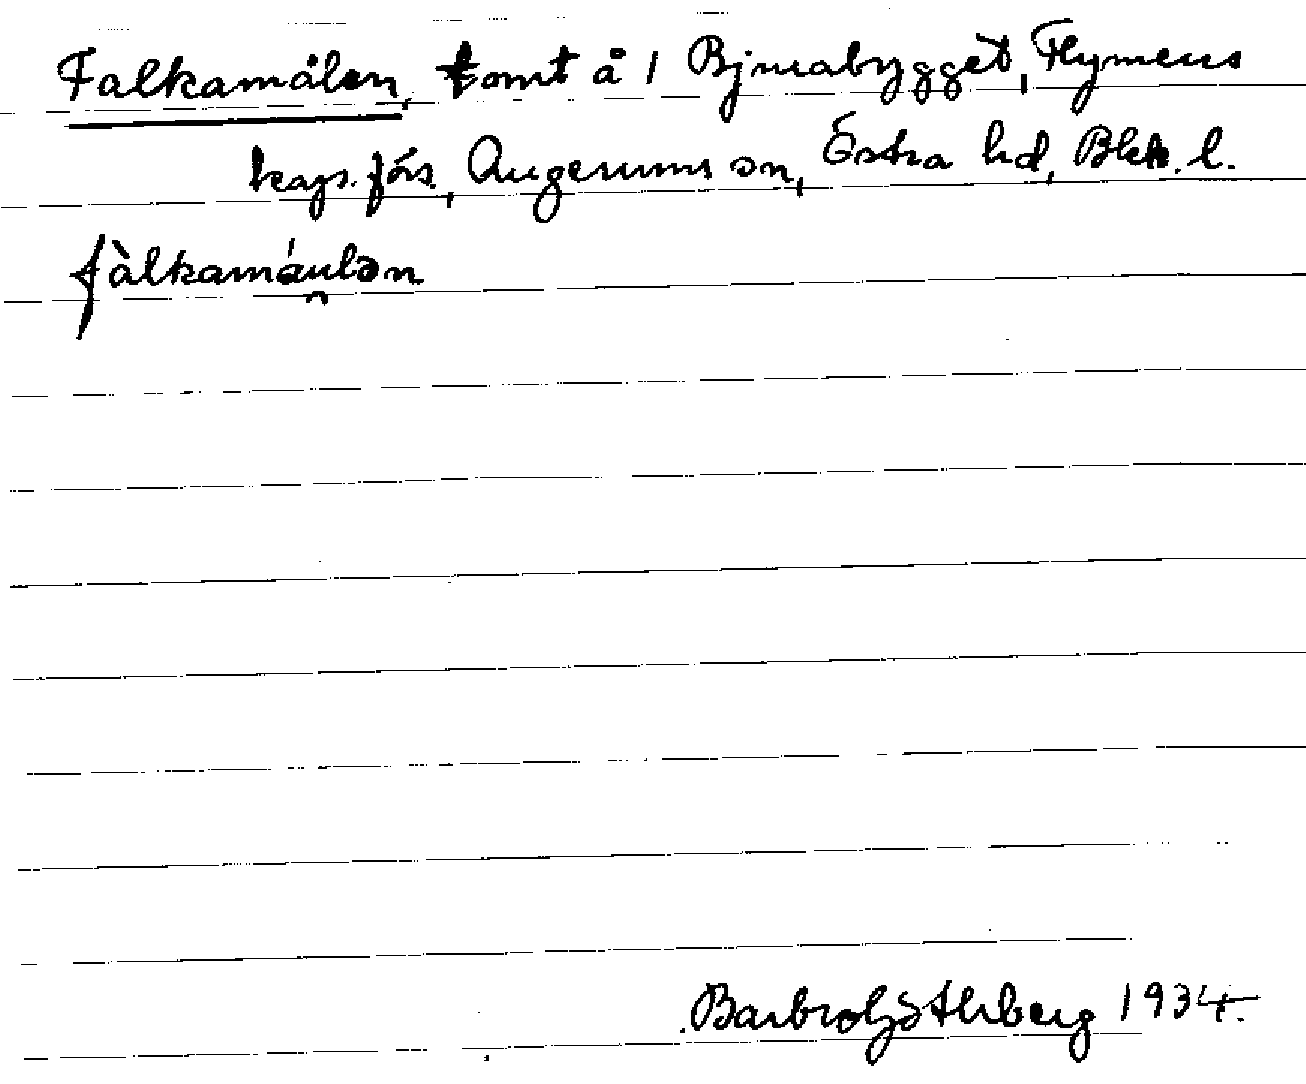 Falkamålen, tomt å 1 Bjurabygget, Flymens
kaps.förs., Augerums sn, Östra hd, Blek. l.
fàlkamáu̯lən
Barbro Göthberg 1934.